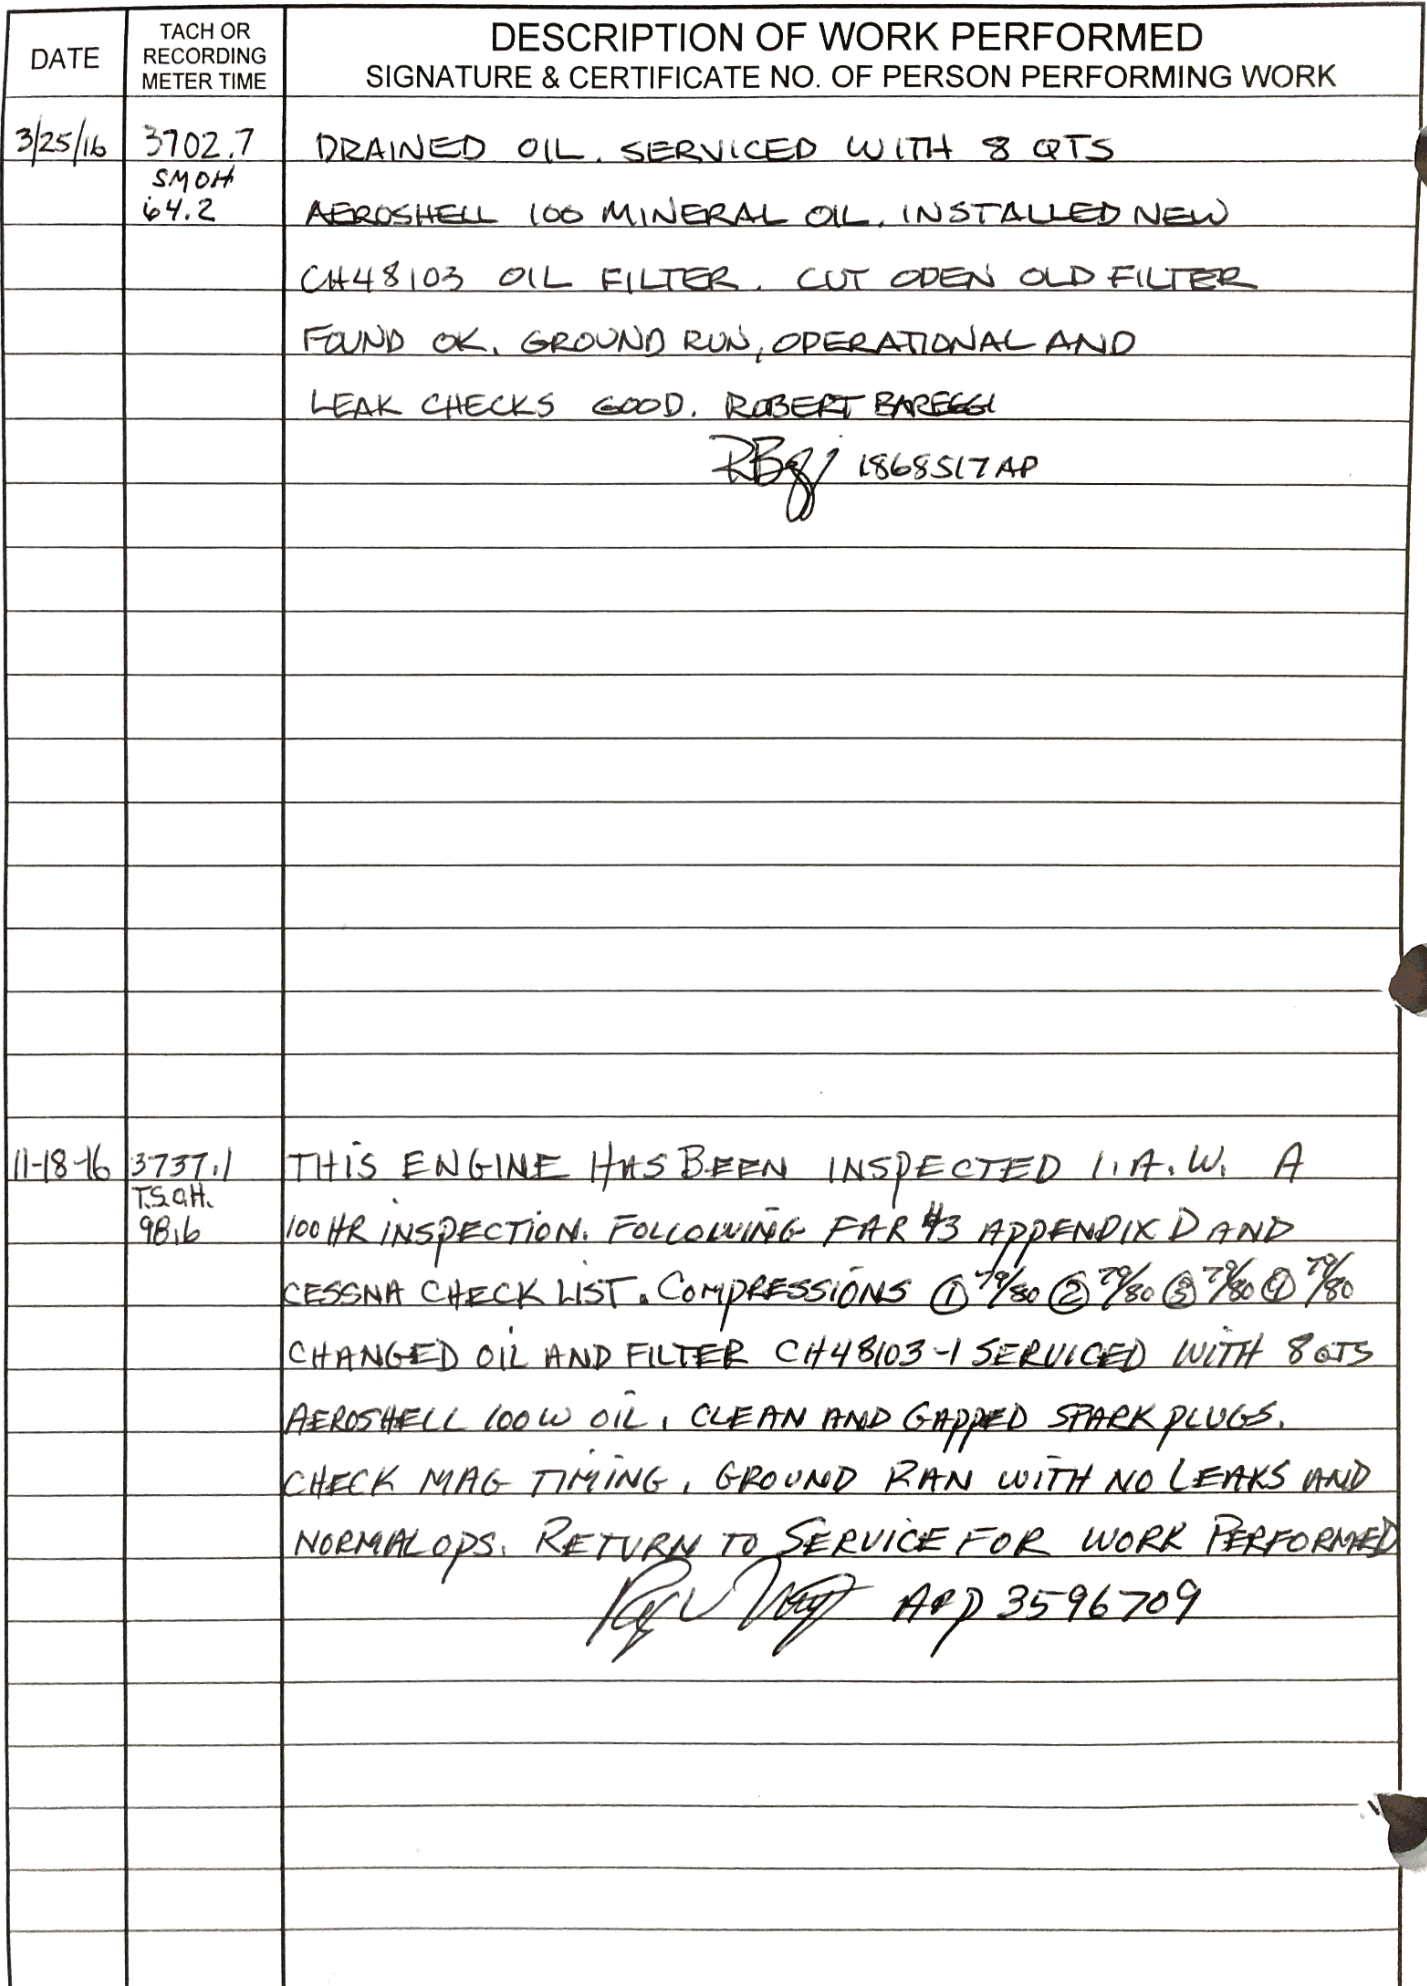 DATE
TACH OR
RECORDING
METER TIME
DESCRIPTION OF WORK PERFORMED
SIGNATURE & CERTIFICATE NO. OF PERSON PERFORMING WORK
3/25/16 3702.7 DRAINED OIL. SERVICED WITH 8 QTS
SMOH
64.2 AEROSHELL 100 MINERAL OIL. INSTALLED NEW
CH48103 OIL FILTER. CUT OPEN OLD FILTER
FOUND OK. GROUND RUN, OPERATIONAL AND
LEAK CHECKS GOOD. ROBERT BAREGGI
1868517AP
11-18-16 3737.1 THIS ENGINE HAS BEEN INSPECTED I.A.W. A
T.S.O.H.
98.6 100 HR INSPECTION. FOLLOWING FAR 43 APPENDIX D AND
CESSNA CHECK LIST. COMPRESSIONS ① 79/80 ② 79/80 ③ 79/80 ④ 79/80
CHANGED OIL AND FILTER CH48103-1 SERVICED WITH 8 QTS
AEROSHELL 100W OIL, CLEAN AND GAPPED SPARK PLUGS.
CHECK MAG TIMING, GROUND RAN WITH NO LEAKS AND
NORMAL OPS. RETURN TO SERVICE FOR WORK PERFORMED
A&P 3596709